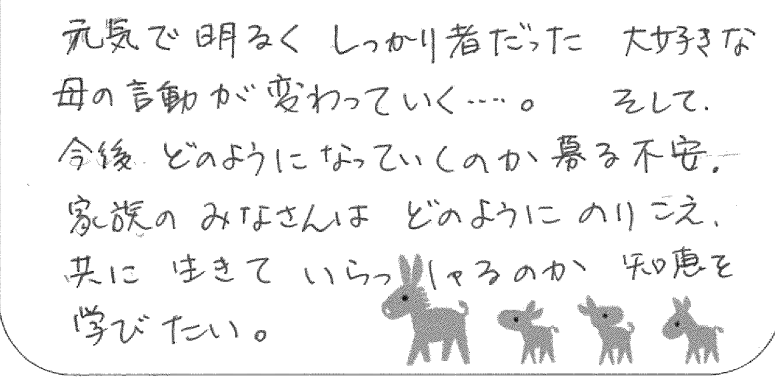 元気で明るく しっかり者だった 大好きな
母の言動が変わっていく……。 そして、
今後 どのようになっていくのか募る不安。
家族の みなさんは どのように のりこえ、
共に 生きて いらっしゃるのか 知恵を
学びたい。